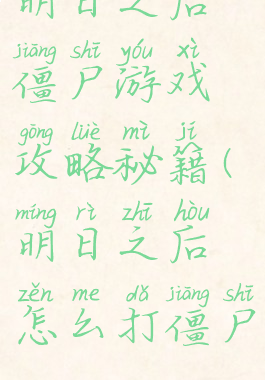 明日之后
jiāng shī yóu xì
僵尸游戏
gōng lüè mì jí
攻略秘籍(
míng rì zhī hòu
明日之后
zěn me dǎ jiāng shī
怎么打僵尸